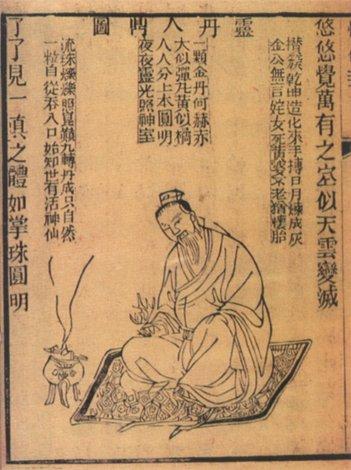 悠悠覺萬有之空似天雲變滅
靈丹入鼎圖
攢簇乾坤造化來手摶日月煉成灰
金公無言姹女死黃婆不老猶懷胎
一顆金丹何赫赤
大似彈丸黃似橘
人人分上本圓明
夜夜靈光照神室
流珠爍爍照崑巔九轉丹成只自然
一粒自從吞入口始知世有活神仙
了了見一真之體如掌珠圓明